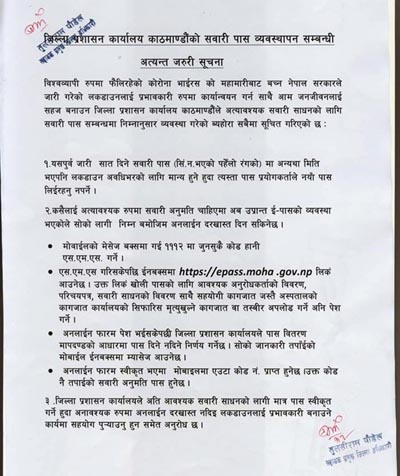 जिल्ला प्रशासन कार्यालय काठमाण्डौको सवारी पास व्यवस्थापन सम्बन्धी
अत्यन्त जरुरी सूचना
विश्वव्यापी रुपमा फैलिरहेको कोरोना भाईरस को महामारीबाट बच्न नेपाल सरकारले
जारी गरेको लकडाउनलाई प्रभावकारी रुपमा कार्यान्वयन गर्न साथै आम जनजीवनलाई
सहज बनाउन जिल्ला प्रशासन कार्यालय काठमाण्डौले अत्यावश्यक सवारी साधनको लागि
सवारी पास सम्बन्धमा निम्नानुसार व्यवस्था गरेको ब्यहोरा सबैमा सूचित गरिएको छ :
१.यसपूर्व जारी सात दिने सवारी पास (सि.नं.भएको पहेँलो रंगको) मा अन्यथा मिति
भएपनि लकडाउन अवधिभरको लागि मान्य हुने हुदा त्यस्ता पास प्रयोगकर्ताले नयाँ पास
लिईरहनु नपर्ने ।
२.कसैलाई अत्यावश्यक रुपमा सवारी अनुमति चाहिएमा अब उप्रान्त ई-पासको व्यवस्था
भएकोले सोको लागी निम्न बमोजिम अनलाईन दरखास्त दिन सकिनेछ ।
• मोबाईलको मेसेज बक्समा गई १११२ मा जुनसुकै कोड हानी
एस.एम.एस. गर्ने ।
• एस.एम.एस गरिसकेपछि ईनबक्समा https://epass.moha.gov.np लिंक
आउनेछ । उक्त लिंक खोली पासको लागि आवश्यक अनुरोधकर्ताको विवरण,
परिचयपत्र, सवारी साधनको विवरण साथै सहयोगी कागजात जस्तै अस्पतालको
कागजात कार्यालयको सिफारिस मृत्युखुल्ने कागजात वा तस्वीर अपलोड गर्ने अनि पेश
गर्ने ।
• अनलाईन फारम पेश भईसकेपछी जिल्ला प्रशासन कार्यालयले पास वितरण
मापदण्डको आधारमा पास दिने नदिने निर्णय गर्नेछ । सोको जानकारी तपाँईको
मोबाईल ईनबक्समा म्यासेज आउनेछ ।
• अनलाईन फारम स्वीकृत भएमा मोबाइलमा एउटा कोड नं. प्राप्त हुनेछ ।उक्त कोड
नै तपाईको सवारी अनुमति पास हुनेछ ।
३ .जिल्ला प्रशासन कार्यालयले अति आवश्यक सवारी साधनको लागी मात्र पास स्वीकृत
गर्ने हुदा अनावश्यक रुपमा अनलाईन दरखास्त नदिइ लकडाउनलाई प्रभावकारी बनाउने
कार्यमा सहयोग पुर्‍याउनु हुन समेत अनुरोध छ ।
तुलसीराम पौडेल